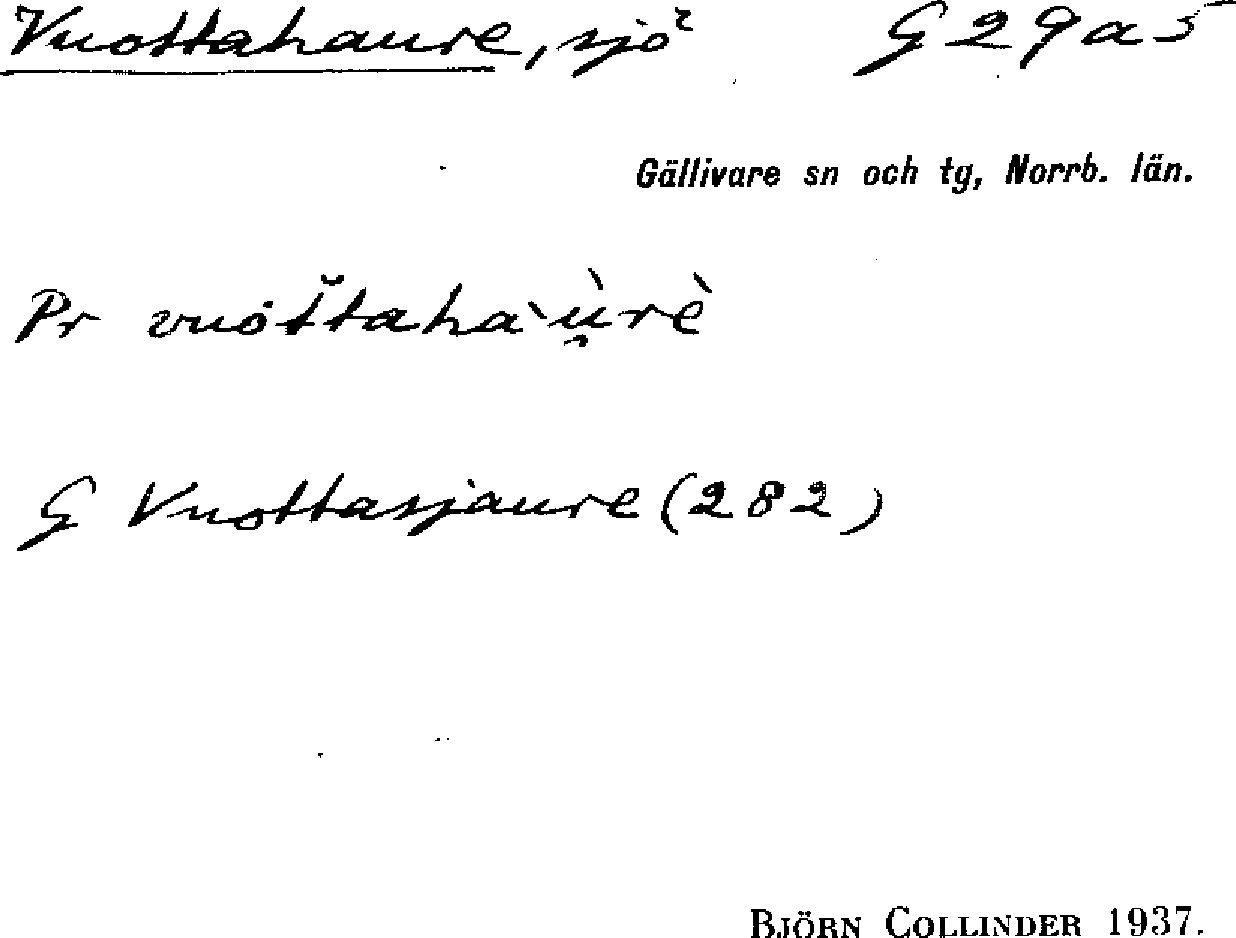 Vuottahaure, sjö G 29 a 5
Gällivare sn och tg, Norrb. län.
Pr vuòt̆tahàù̯rè
G Vuottasjaure (282)
BJÖRN COLLINDER 1937.